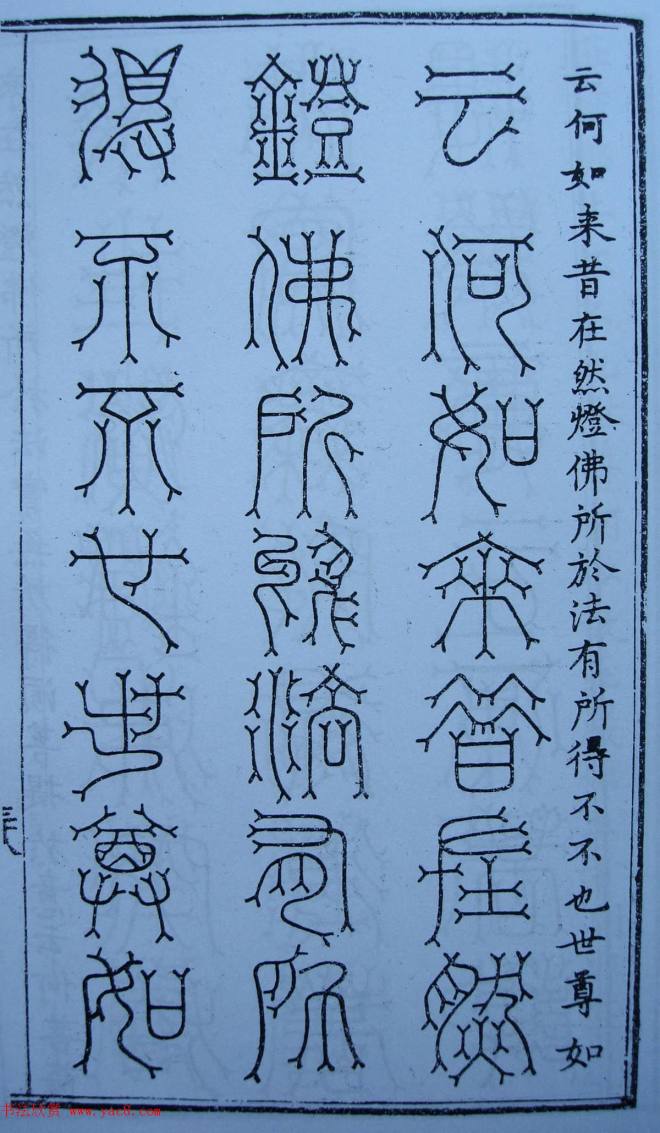 云何如来昔在然燈佛所於法有所得不不也世尊如
云何如來昔在然
鐙佛所於法有所
得不不也世尊如
书法欣赏 www.yac8.com